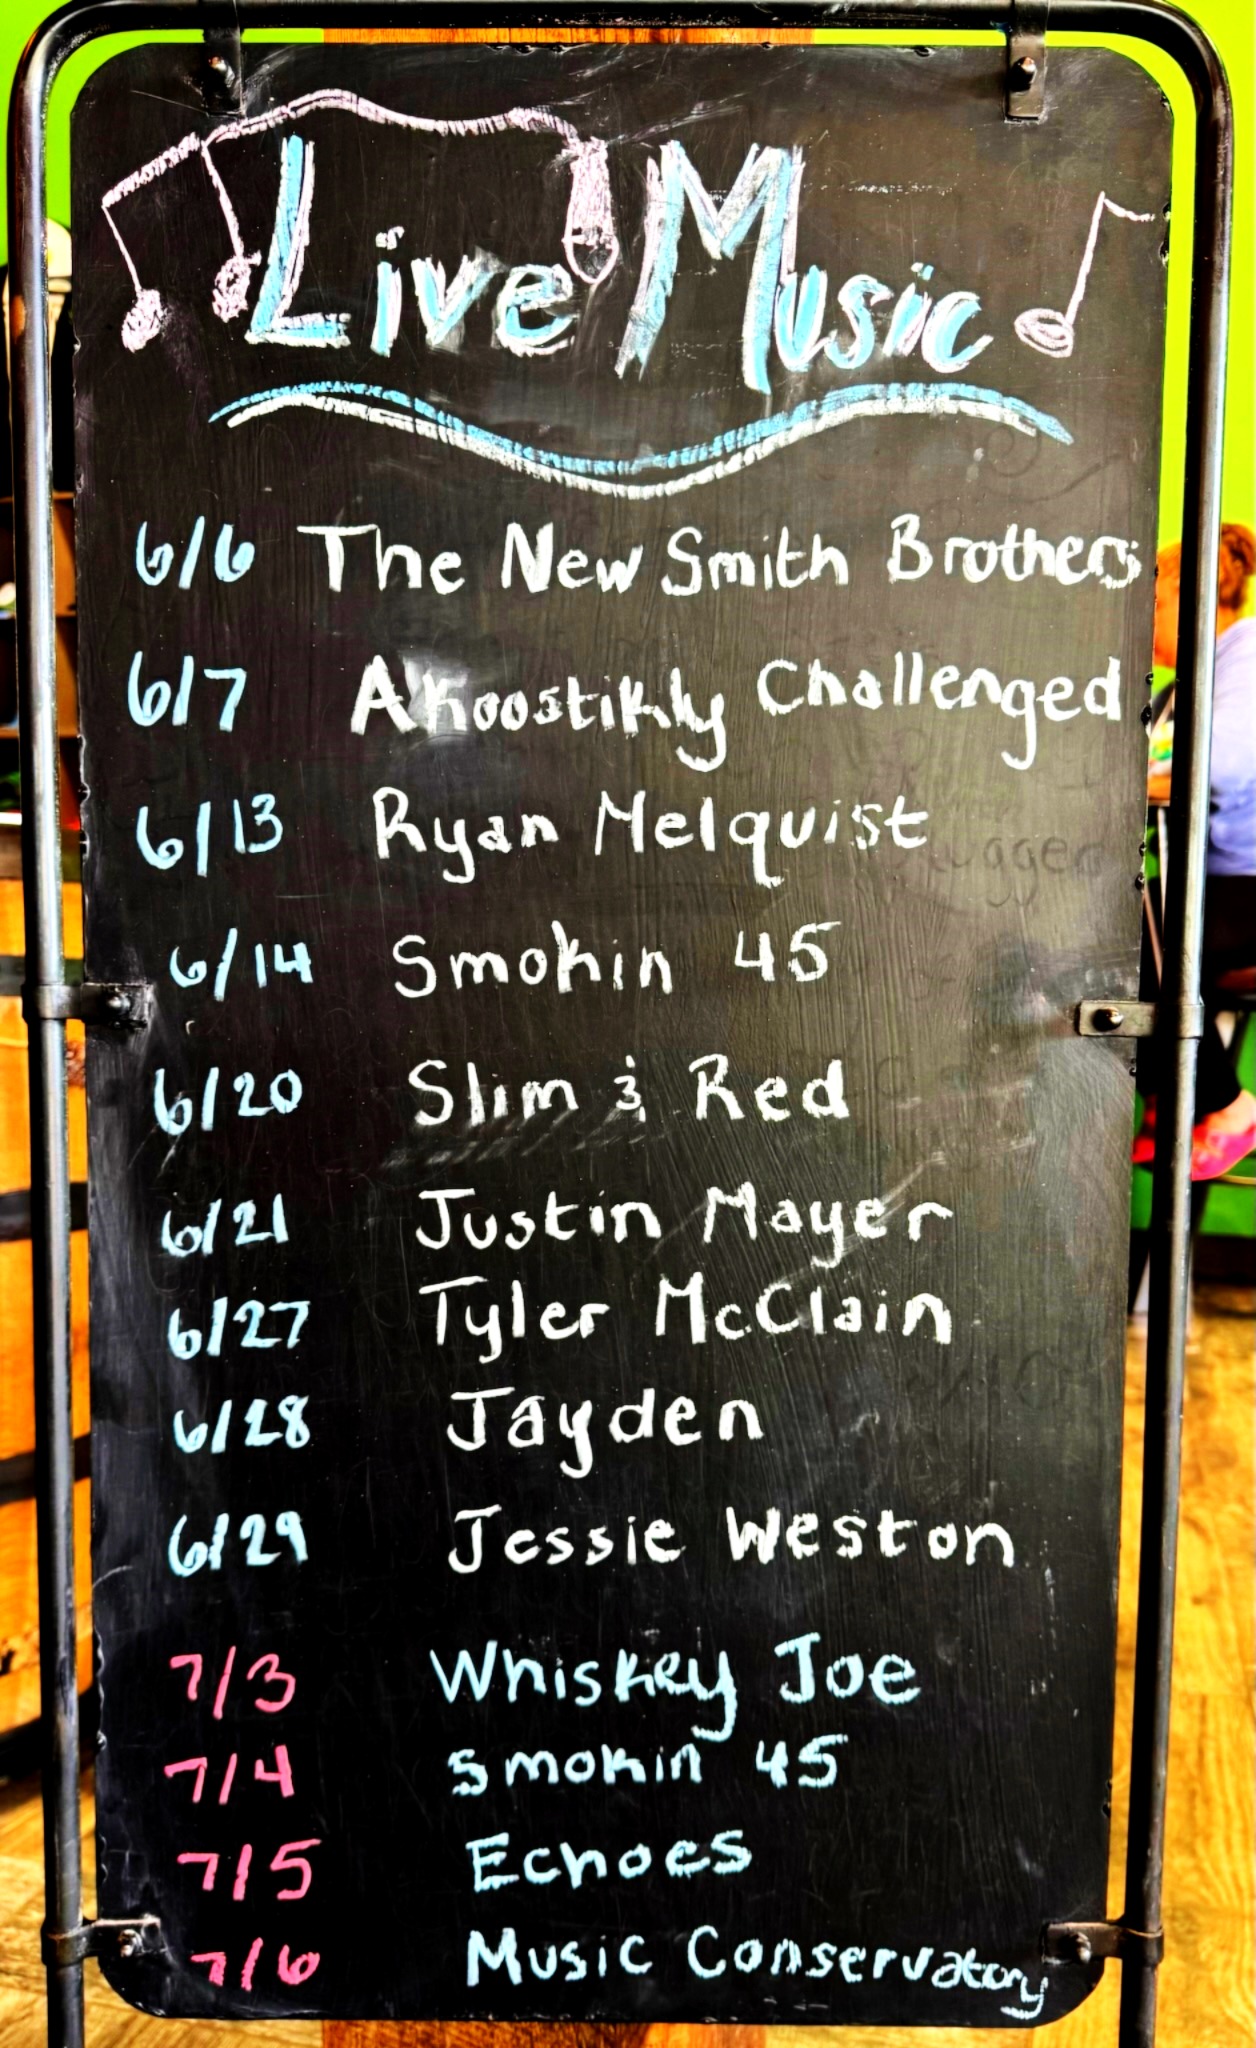 Live Music
6/6 The New Smith Brothers
6/7 Akoostikly Challenged
6/13 Ryan Melquist
6/14 Smokin 45
6/20 Slim & Red
6/21 Justin Mayer
6/27 Tyler McClain
6/28 Jayden
6/29 Jessie Weston
7/3 Whiskey Joe
7/4 Smokin 45
7/5 Echoes
7/6 Music Conservatory